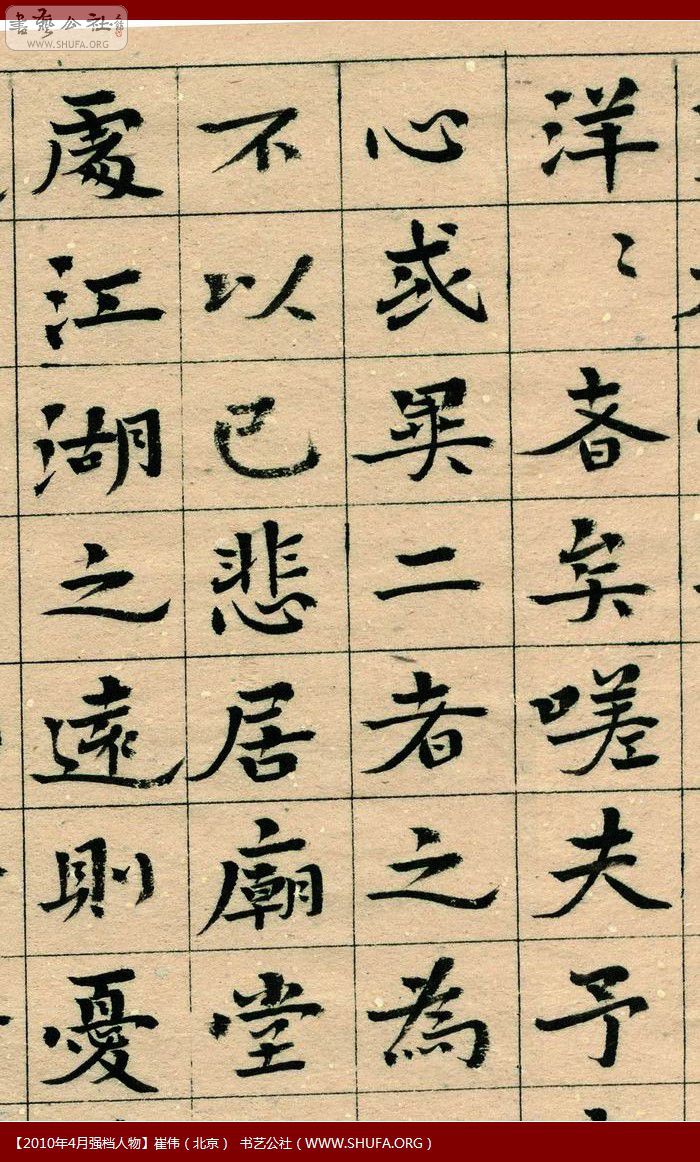 書藝公社
WWW.SHUFA.ORG
洋〻者矣嗟夫予
心或異二者之為
不以己悲居廟堂
處江湖之遠則憂
【2010年4月强档人物】崔伟（北京） 书艺公社（WWW.SHUFA.ORG）